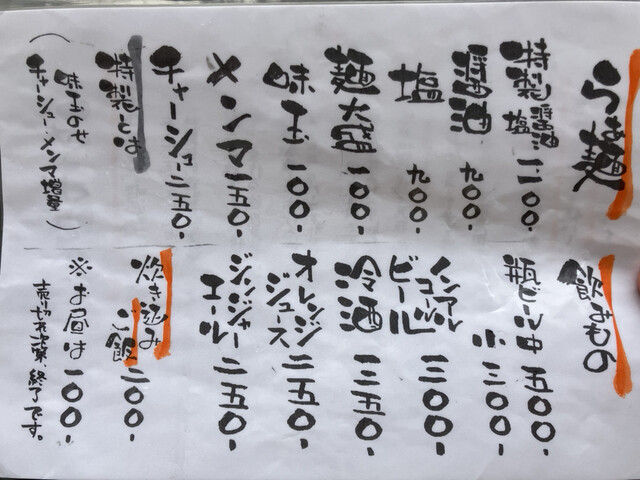 らぁ麺
特製 醤油 塩 一一〇〇-
醤油 九〇〇-
塩 九〇〇-
麺大盛 一〇〇-
味玉 一〇〇-
メンマ 二五〇-
チャーシュー 二五〇-
特製とは
(味玉のせ
チャーシュー・メンマ増量)
飲みもの
瓶ビール中 五〇〇-
小 三〇〇-
ノンアルコールビール 三〇〇-
冷酒 三五〇-
オレンジジュース 二五〇-
ジンジャーエール 二五〇-
炊き込みご飯 二〇〇-
※お昼は一〇〇-
売り切れ次第、終了です。